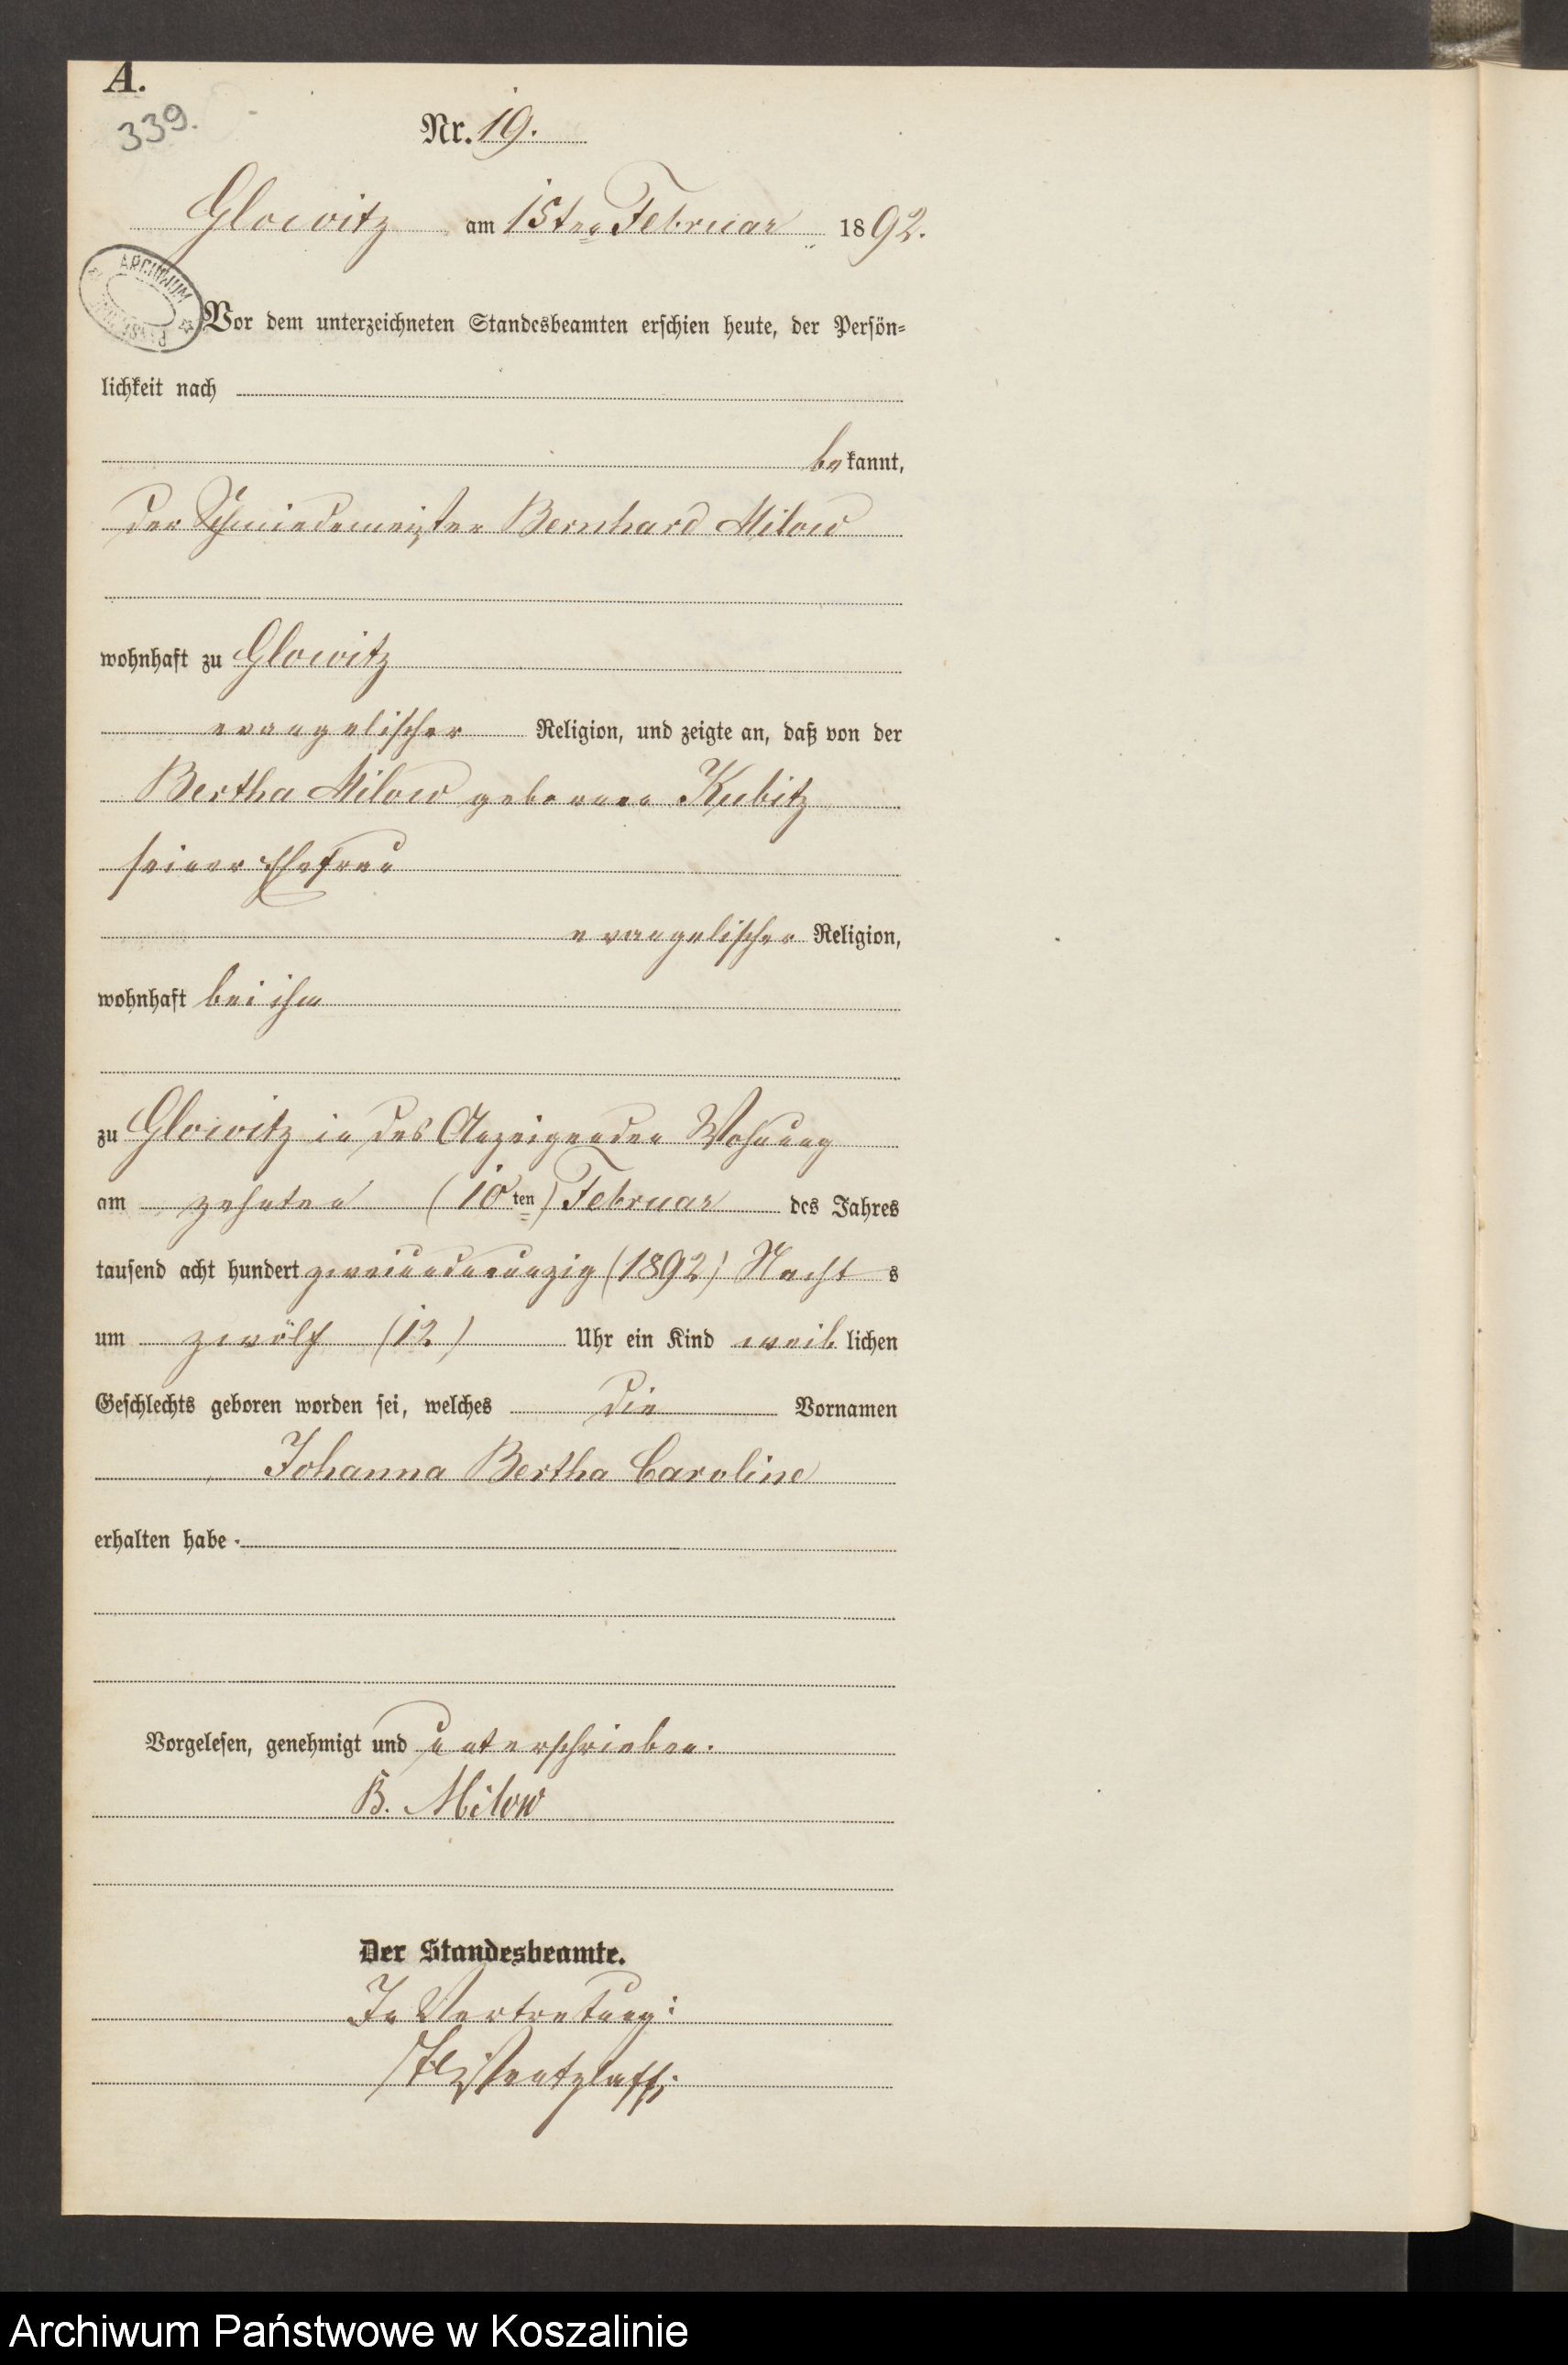 A.
339.
Nr. 19.
Glowitz am 15ten Februar 1892.
ARCHIWUM
Vor dem unterzeichneten Standesbeamten erschien heute, der Persön-
lichkeit nach
bekannt,
der Schmiedemeister Bernhard Milow
wohnhaft zu Glowitz
evangelischer Religion, und zeigte an, daß von der
Bertha Milow geborenen Kubitz
seiner Ehefrau
evangelischer Religion,
wohnhaft bei ihm
zu Glowitz in des Anzeigenden Wohnung
am zehnten (10ten) Februar des Jahres
tausend acht hundert zweiundneunzig (1892) Nachts
um zwölf (12) Uhr ein Kind weiblichen
Geschlechts geboren worden sei, welches die Vornamen
Johanna Bertha Caroline
erhalten habe.
Vorgelesen, genehmigt und unterschrieben.
B. Milow
Der Standesbeamte.
In Vertretung:
Archiwum Państwowe w Koszalinie